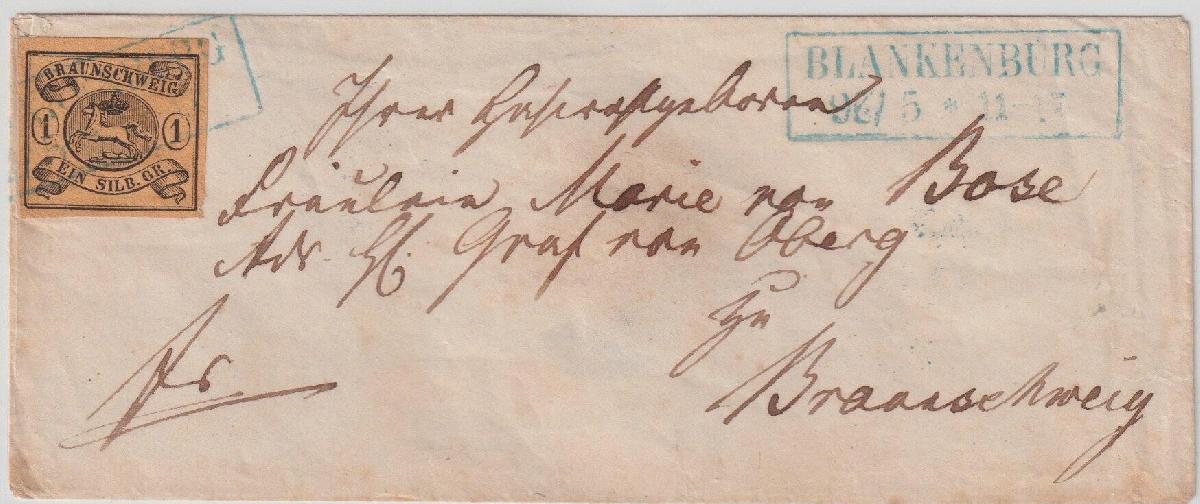 BRAUNSCHWEIG
1 1
EIN SILB. GR.
BLANKENBURG
5 * 11-
Ihrer Hochwohlgeboren
Fräulein Marie von Bose
Adr. H. Graf von Oberg
zu
Braunschweig
fr